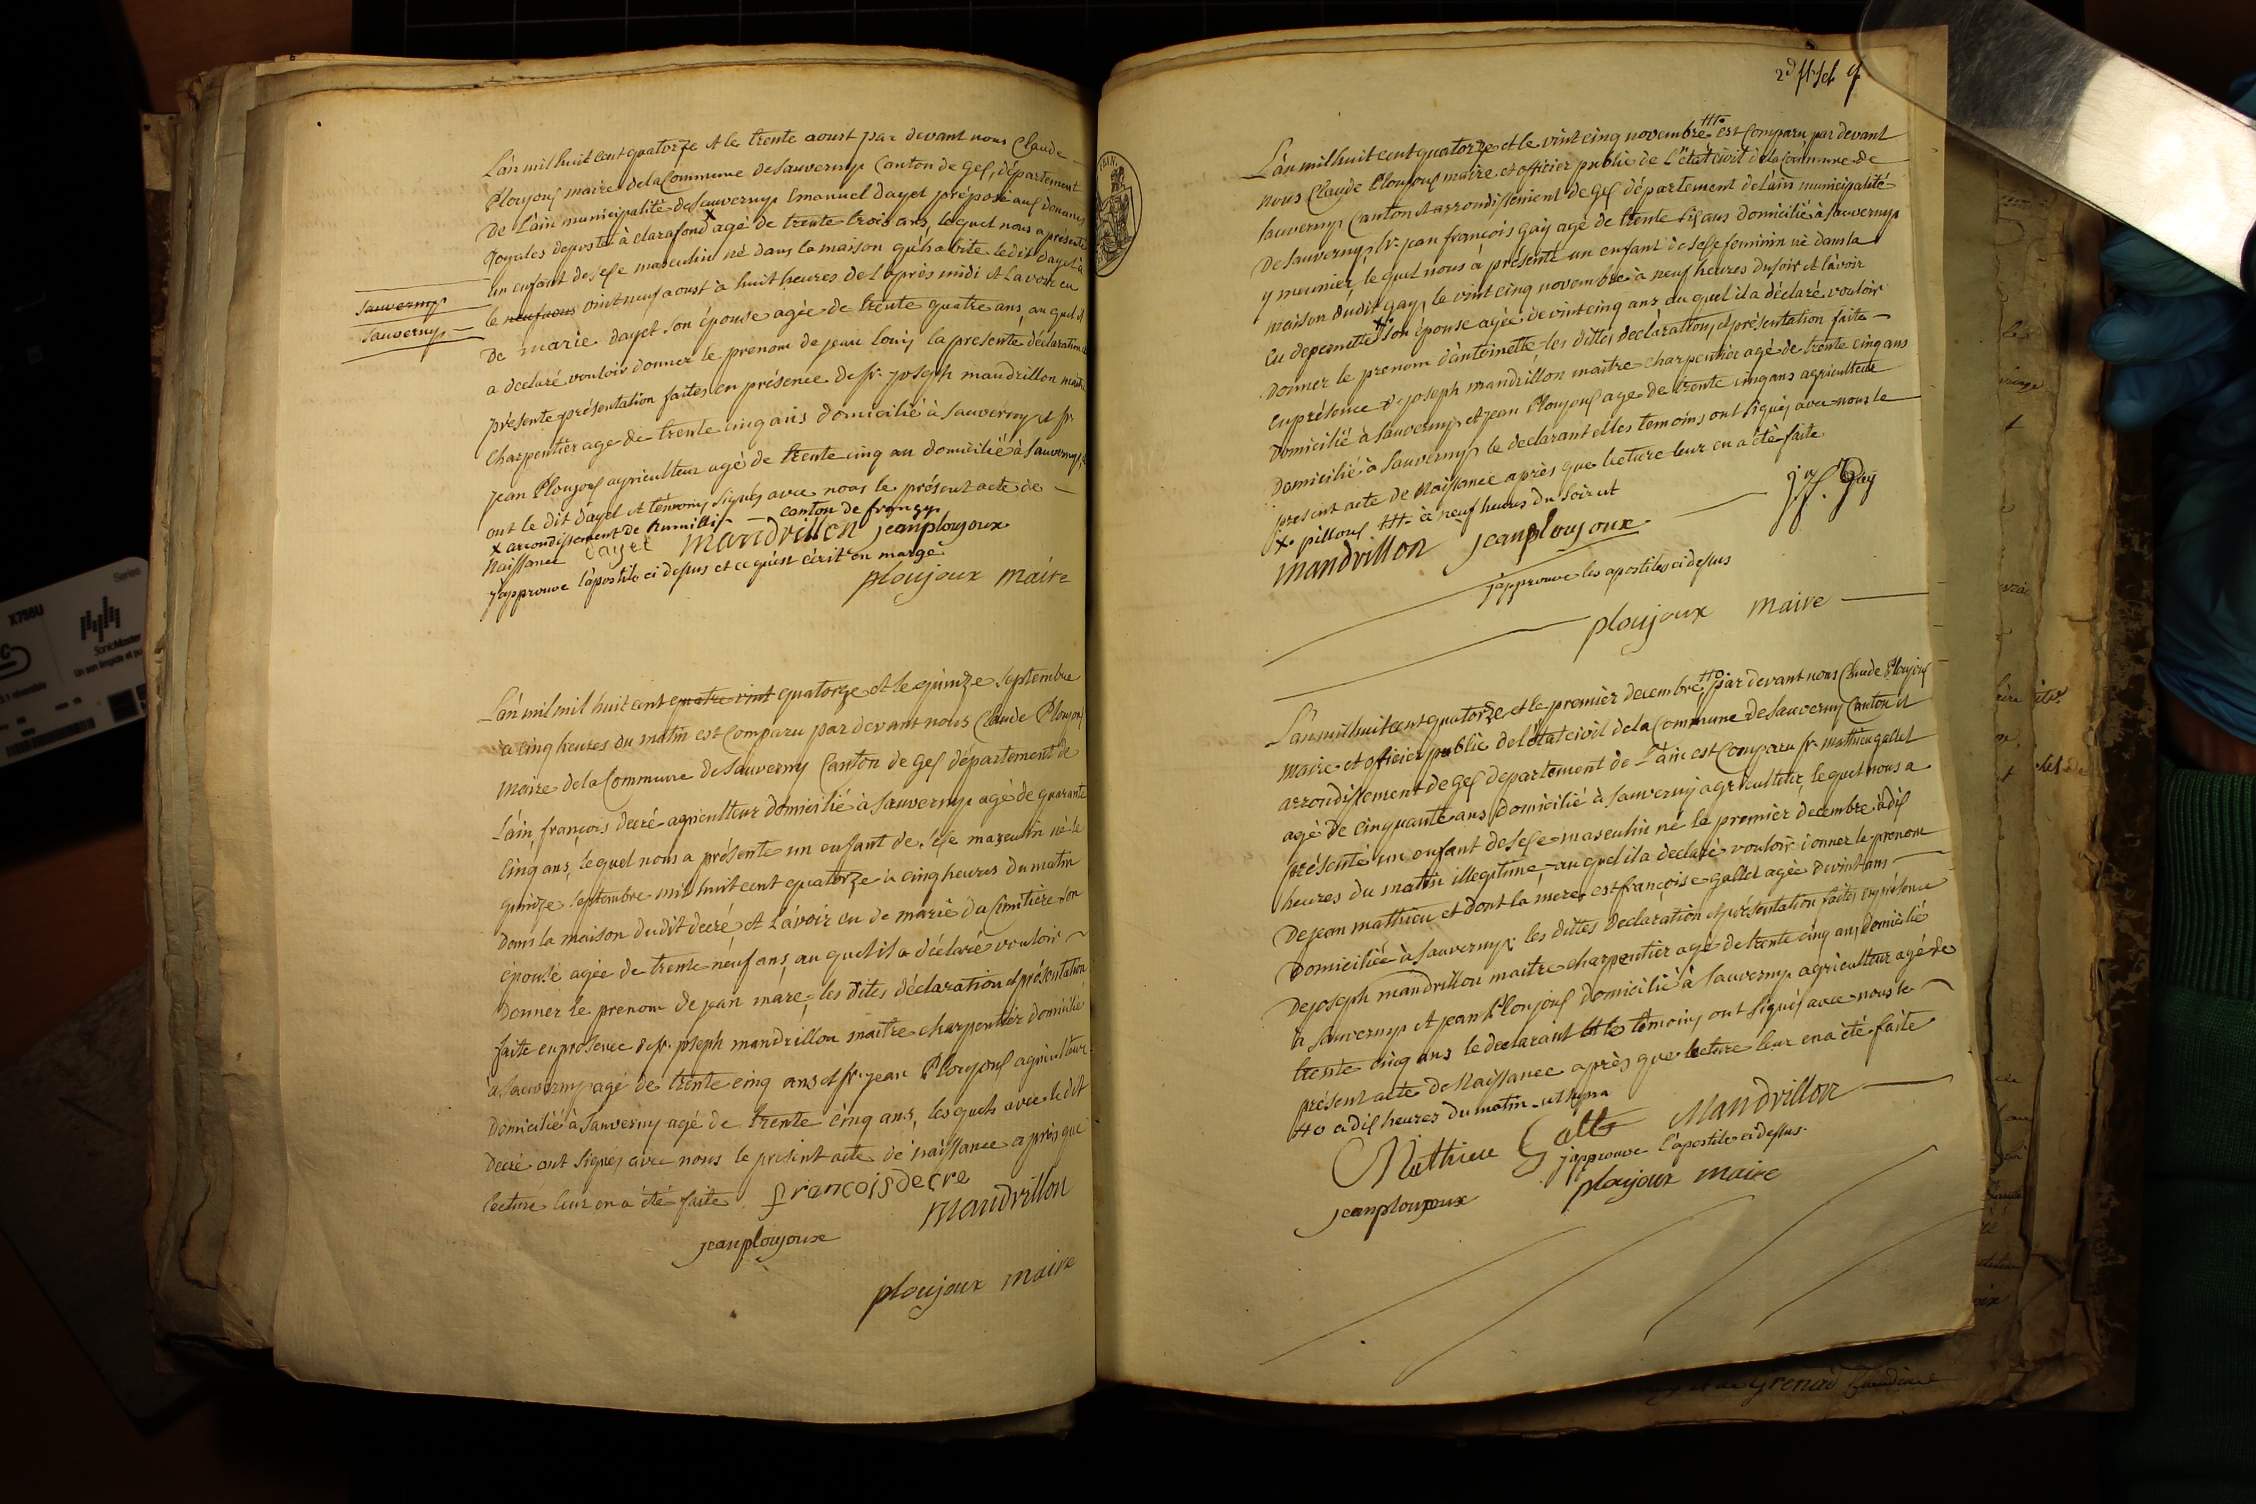 L'an mil huit cent quatorze et le trente aoust par devant nous Claude
Ploujoux maire de la Commune de Sauverny Canton de Gex, département
De L'ain municipalité de Sauverny Emanuel dayet préposé aux douanes
Royales deposté à clarafond X agé de trente trois ans, lequel nous a présenté
un enfant de sexe masculin né dans la maison qu'habite le dit dayet à
Sauverny
Sauverny
le neufaous vint neuf aoust à huit heures de l'après midi et L'avoir eu
De marie dayet son épouse agée de trente quatre ans, au quel il
a declaré vouloir donner le prenom de jean louis la presente déclaration
présente présentation faites en présence de sr. joseph mandrillon maitre
Charpentier age de trente cinq ans domicilié à Sauverny et sr.
jean Ploujoux agriculteur agé de trente cinq an domicilié à Sauverny,
ont le dit dayet et témoins signés avec nous le présent acte de
X arrondissement de Rumilli canton de frangy
Naissance dayet mandrillon jean ploujoux
j'approuve l'apostile ci dessus et ce qu'est écrit en marge
ploujoux maire
L'an mil mil huit cent quatre vint quatorze et le quinze septembre
à cinq heures du matin est Comparu par devant nous Claude Ploujoux
maire de la Commune de Sauverny Canton de Gex département de
L'ain, françois decré agriculteur domicilié à Sauverny agé de quarante
Cinq ans, lequel nous a présenté un enfant de sexe masculin né le
quinze septembre mil huit cent quatorze à cinq heures du matin
dans la maison dudit decré et L'avoir eu de marie du Cimitière son
épouse agée de trente neuf ans, au quel il a déclaré vouloir
donner le prenom de jean marc, les dites déclaration et présentation
faite en présence de sr. joseph mandrillon maitre charpentier domicilié
à Sauverny agé de trente cinq ans et sr. jean Ploujoux agriculteur
domicilié à Sauverny agé de trente cinq ans, les quels avec le dit
decré ont signés avec nous le présent acte de naissance après que
lecture leur en a été faite. francois decre
mandrillon
jean ploujoux
ploujoux maire
L'an mil huit cent quatorze et le vint cinq novembre est Comparu par devant
nous Claude Ploujoux maire et officier public de L'état civil de la Commune de
Sauverny Canton et arrondissement de Gex département de L'ain municipalité
De Sauverny, Sr. jean françois gay agé de trente six ans domicilié à Sauverny
y meunier, le quel nous a présenté un enfant de sexe feminin né dans la
maison dudit gay, le vint cinq novembre à neuf heures du soir et l'avoir
eu de pernette X son épouse agée de vint cinq ans au quel il a déclaré vouloir
Donner le prenom d'antoinette, les dittes déclaration, et présentation faite
en présence de joseph mandrillon maitre charpentier agé de trente cinq ans
Domicilié à Sauverny et jean Ploujoux age de trente cinq ans agriculteur
Domicilié à Sauverny le declarant et les temoins ont signés avec nous le
présent acte de Naissance après que lecture leur en a été faite
X pilloux à neuf heures du soir ut
mandrillon jean ploujoux jf. Gay
j'approuve les apostiles ci dessus
ploujoux maire
L'an mil huit cent quatorze et le premier decembre, par devant nous Claude Ploujoux
maire et officier public de l'état civil de la Commune de Sauverny Canton et
arrondissement de Gex departement de L'ain est Comparu sr. mathieu gallet
agé de cinquante ans Domicilié à Sauverny agriculteur, le quel nous a
présenté un enfant de sexe masculin né le premier decembre à dix
heures du matin illegitime, au quel il a declaré vouloir donner le prenom
De jean mathieu et dont la mère est françoise gallet agée de vint ans
Domiciliée à Sauverny, les dittes declaration et présentation faites en présence
de joseph mandrillon maitre charpentier agé de trente cinq ans, domicilié
à Sauverny et jean Ploujoux domicilié à Sauverny agriculteur agé de
trente cinq ans le declarant et les témoins ont signés avec nous le
présent acte de Naissance après que lecture leur en a été faite
à dix heures du matin
Mathieu Mandrillon
j'approuve l'apostile ci dessus
jean ploujoux ploujoux maire